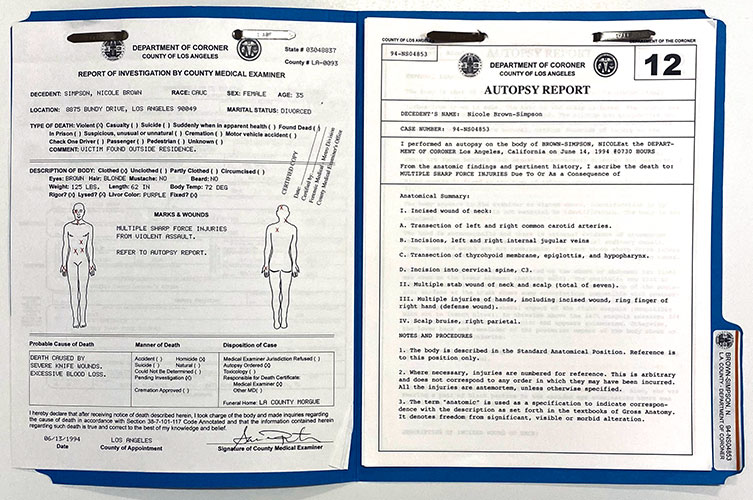 DEPARTMENT OF CORONER
COUNTY OF LOS ANGELES
State # 03048837
County # LA-0093
REPORT OF INVESTIGATION BY COUNTY MEDICAL EXAMINER
DECEDENT: SIMPSON, NICOLE BROWN RACE: CAUC SEX: FEMALE AGE: 35
LOCATION: 8875 BUNDY DRIVE, LOS ANGELES 90049 MARITAL STATUS: DIVORCED
TYPE OF DEATH: Violent (X) Casualty ( ) Suicide ( ) Suddenly when in apparent health ( ) Found Dead ( )
In Prison ( ) Suspicious, unusual or unnatural ( ) Cremation ( ) Motor vehicle accident ( )
Check One Driver ( ) Passenger ( ) Pedestrian ( ) Unknown ( )
COMMENT: VICTIM FOUND OUTSIDE RESIDENCE.
DESCRIPTION OF BODY: Clothed (X) Unclothed ( ) Partly Clothed ( ) Circumcised ( )
Eyes: BROWN Hair: BLONDE Mustache: NO Beard: NO
Weight: 125 LBS. Length: 62 IN Body Temp: 72 DEG
Rigor? (X) Lysed? (X) Livor Color: PURPLE Fixed? (X)
CERTIFIED COPY
Date:
Certified by
Forensic Medical Memo Division
County Medical Examiner's Office
MARKS & WOUNDS
MULTIPLE SHARP FORCE INJURIES
FROM VIOLENT ASSAULT.
REFER TO AUTOPSY REPORT.
Probable Cause of Death
DEATH CAUSED BY
SEVERE KNIFE WOUNDS.
EXCESSIVE BLOOD LOSS.
Manner of Death
Accident ( ) Homicide (X)
Suicide ( ) Natural ( )
Could Not Be Determined ( )
Pending Investigation (X)
Cremation Approved ( )
Disposition of Case
Medical Examiner Jurisdiction Refused ( )
Autopsy Ordered (X)
Toxicology ( )
Responsible for Death Certificate:
Medical Examiner (X)
Other MD ( )
Funeral Home: LA COUNTY MORGUE
I hereby declare that after receiving notice of death described herein, I took charge of the body and made inquiries regarding
the cause of death in accordance with Section 38-7-101-117 Code Annotated and that the information contained herein
regarding such death is true and correct to the best of my knowledge and belief.
06/13/1994
Date
LOS ANGELES
County of Appointment
Signature of County Medical Examiner
COUNTY OF LOS ANGELES
DEPARTMENT OF THE CORONER
94-NS04853
DEPARTMENT OF CORONER
COUNTY OF LOS ANGELES
12
AUTOPSY REPORT
DECEDENT'S NAME: Nicole Brown-Simpson
CASE NUMBER: 94-NS04853
I performed an autopsy on the body of BROWN-SIMPSON, NICOLEat the DEPART-
MENT OF CORONER Los Angeles, California on June 14, 1994 @0730 HOURS
From the anatomic findings and pertinent history, I ascribe the death to:
MULTIPLE SHARP FORCE INJURIES Due To Or As a Consequence of
Anatomical Summary:
I. Incised wound of neck:
A. Transection of left and right common carotid arteries.
B. Incisions, left and right internal jugular veins
C. Transection of thyrohyoid membrane, epiglottis, and hypopharynx.
D. Incision into cervical spine, C3.
II. Multiple stab wound of neck and scalp (total of seven).
III. Multiple injuries of hands, including incised wound, ring finger of
right hand (defense wound).
IV. Scalp bruise, right parietal.
NOTES AND PROCEDURES
1. The body is described in the Standard Anatomical Position. Reference is
to this position only.
2. Where necessary, injuries are numbered for reference. This is arbitrary
and does not correspond to any order in which they may have been incurred.
All the injuries are antemortem, unless otherwise specified.
3. The term "anatomic" is used as a specification to indicate correspon-
dence with the description as set forth in the textbooks of Gross Anatomy.
It denotes freedom from significant, visible or morbid alteration.
BROWN-SIMPSON, N 94-NS04853
LA COUNTY / DEPARTMENT OF CORONER